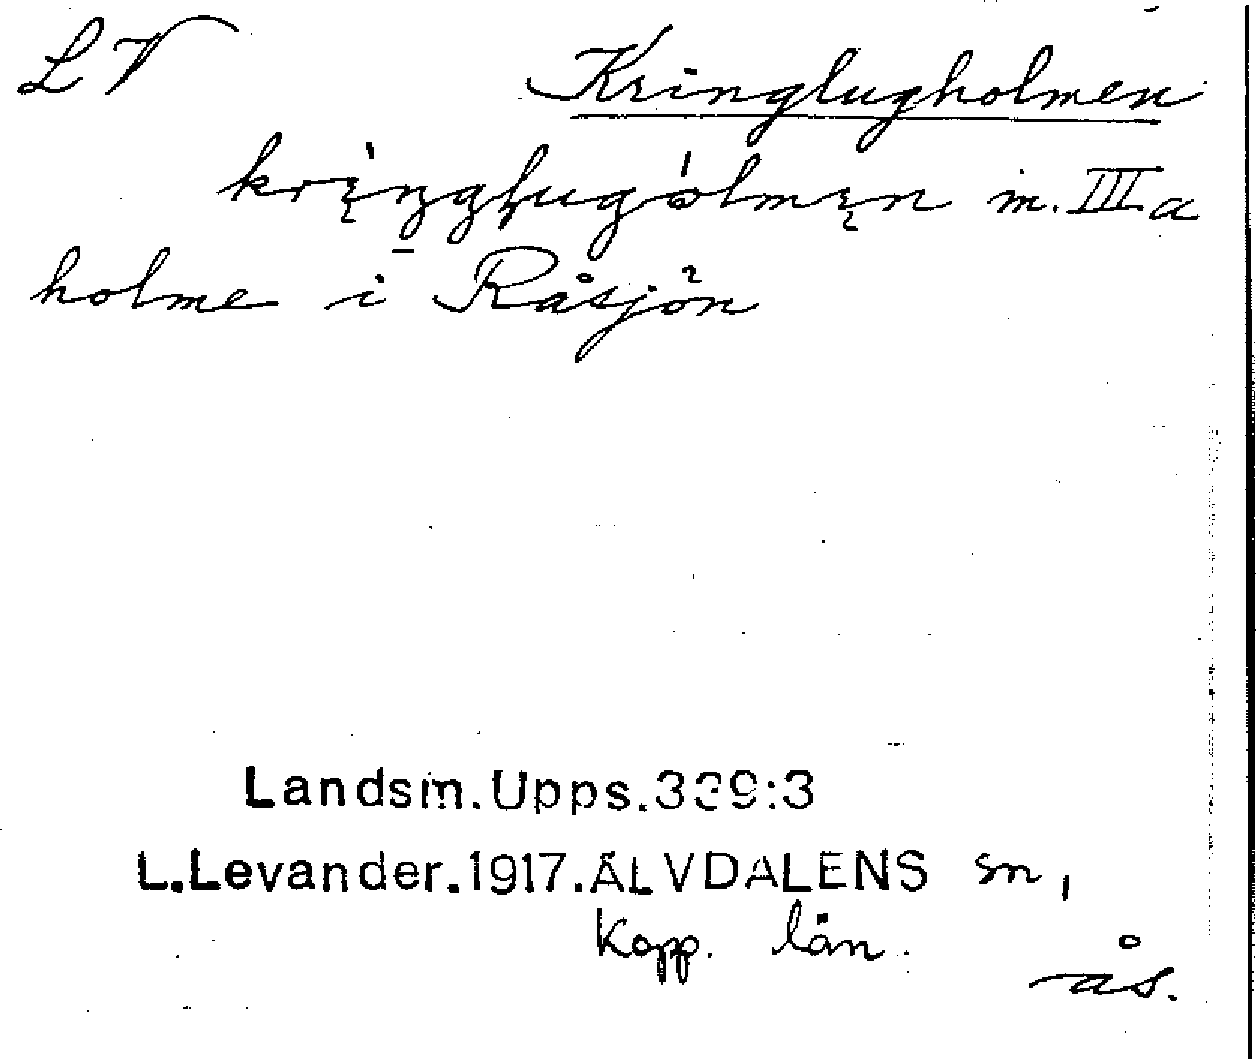 LV Kringlugholmen
kri̢ŋgḷugólmi̢n m. III a
holme i Råsjön
Landsm.Upps.339:3
L.Levander.1917.ÄLVDALENS sn,
Kopp. län.
ås.